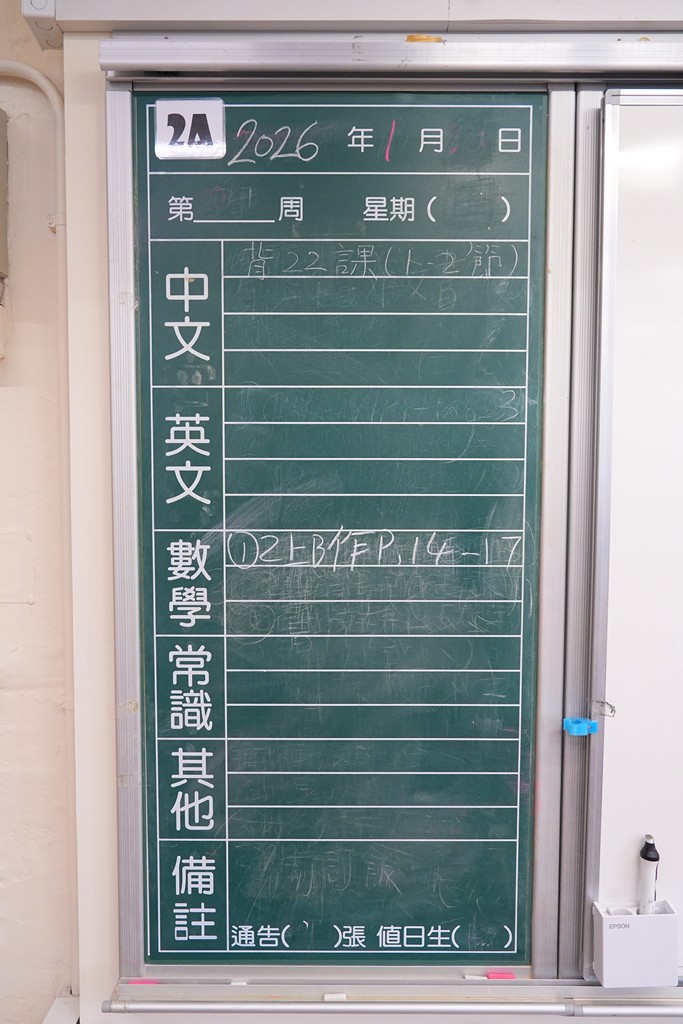 2A 2026 年 1 月 日
第 周 星期( )
中文
背22課(1-2節)
英文
數學
①2上B作P.14-17
常識
其他
備註
通告( )張 值日生( )
EPSON